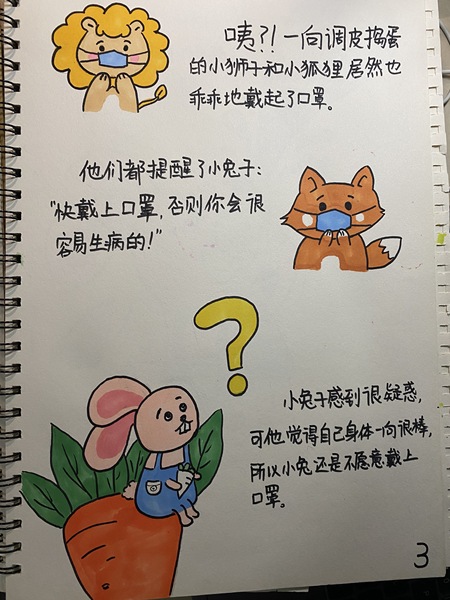 咦?! 一向调皮捣蛋
的小狮子和小狐狸居然也
乖乖地戴起了口罩。
他们都提醒了小兔子：
“快戴上口罩，否则你会很
容易生病的！”
?
小兔子感到很疑惑，
可他觉得自己身体一向很棒，
所以小兔还是不愿意戴上
口罩。
3